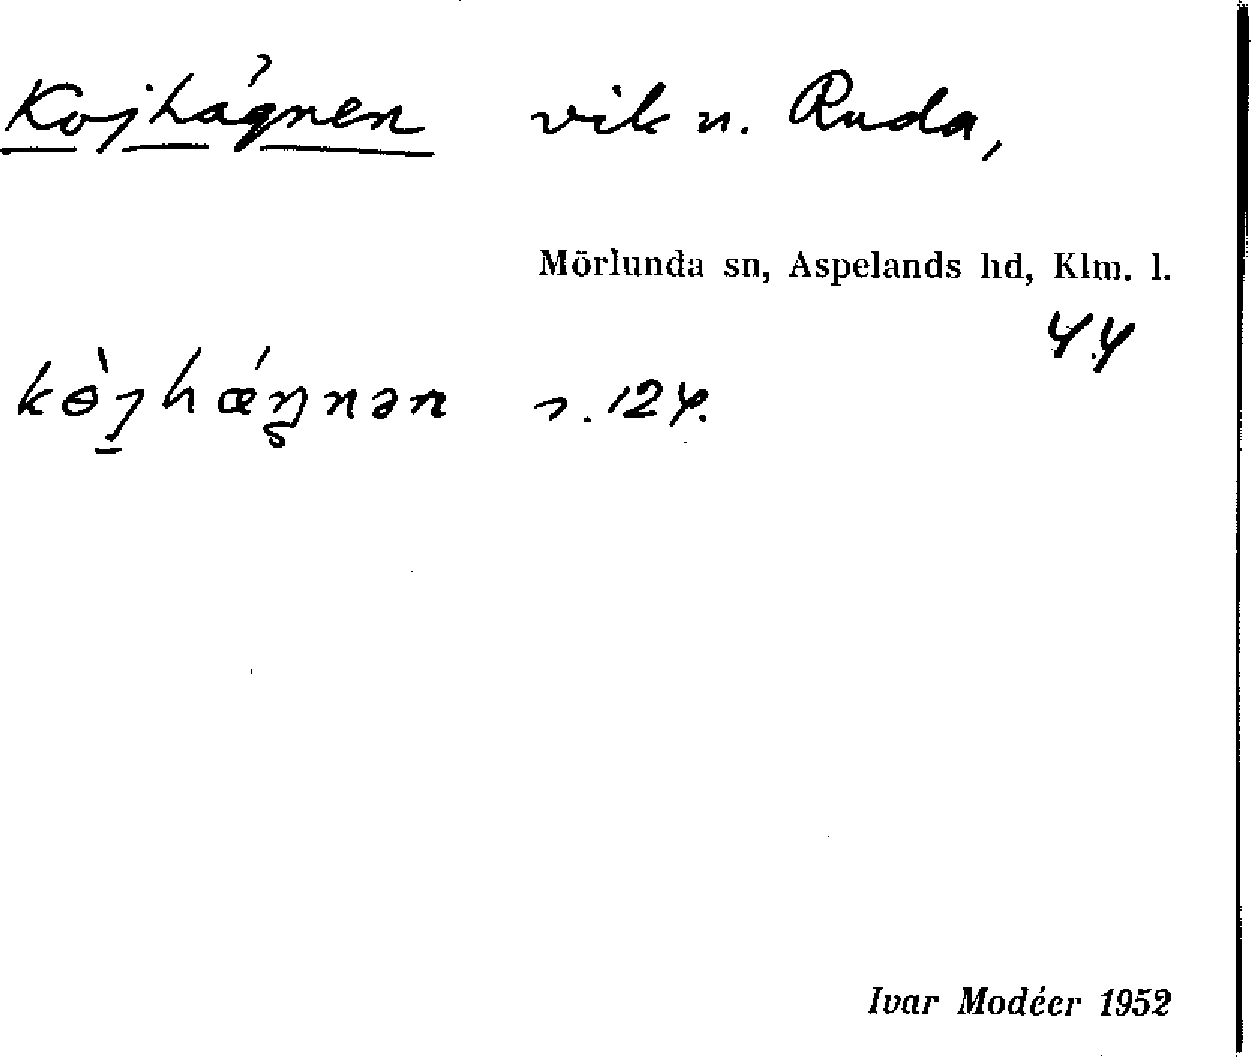 Kojhagnen vik n. Ruda,
Mörlunda sn, Aspelands hd, Klm. l.
44
s. 124.
Ivar Modéer 1952